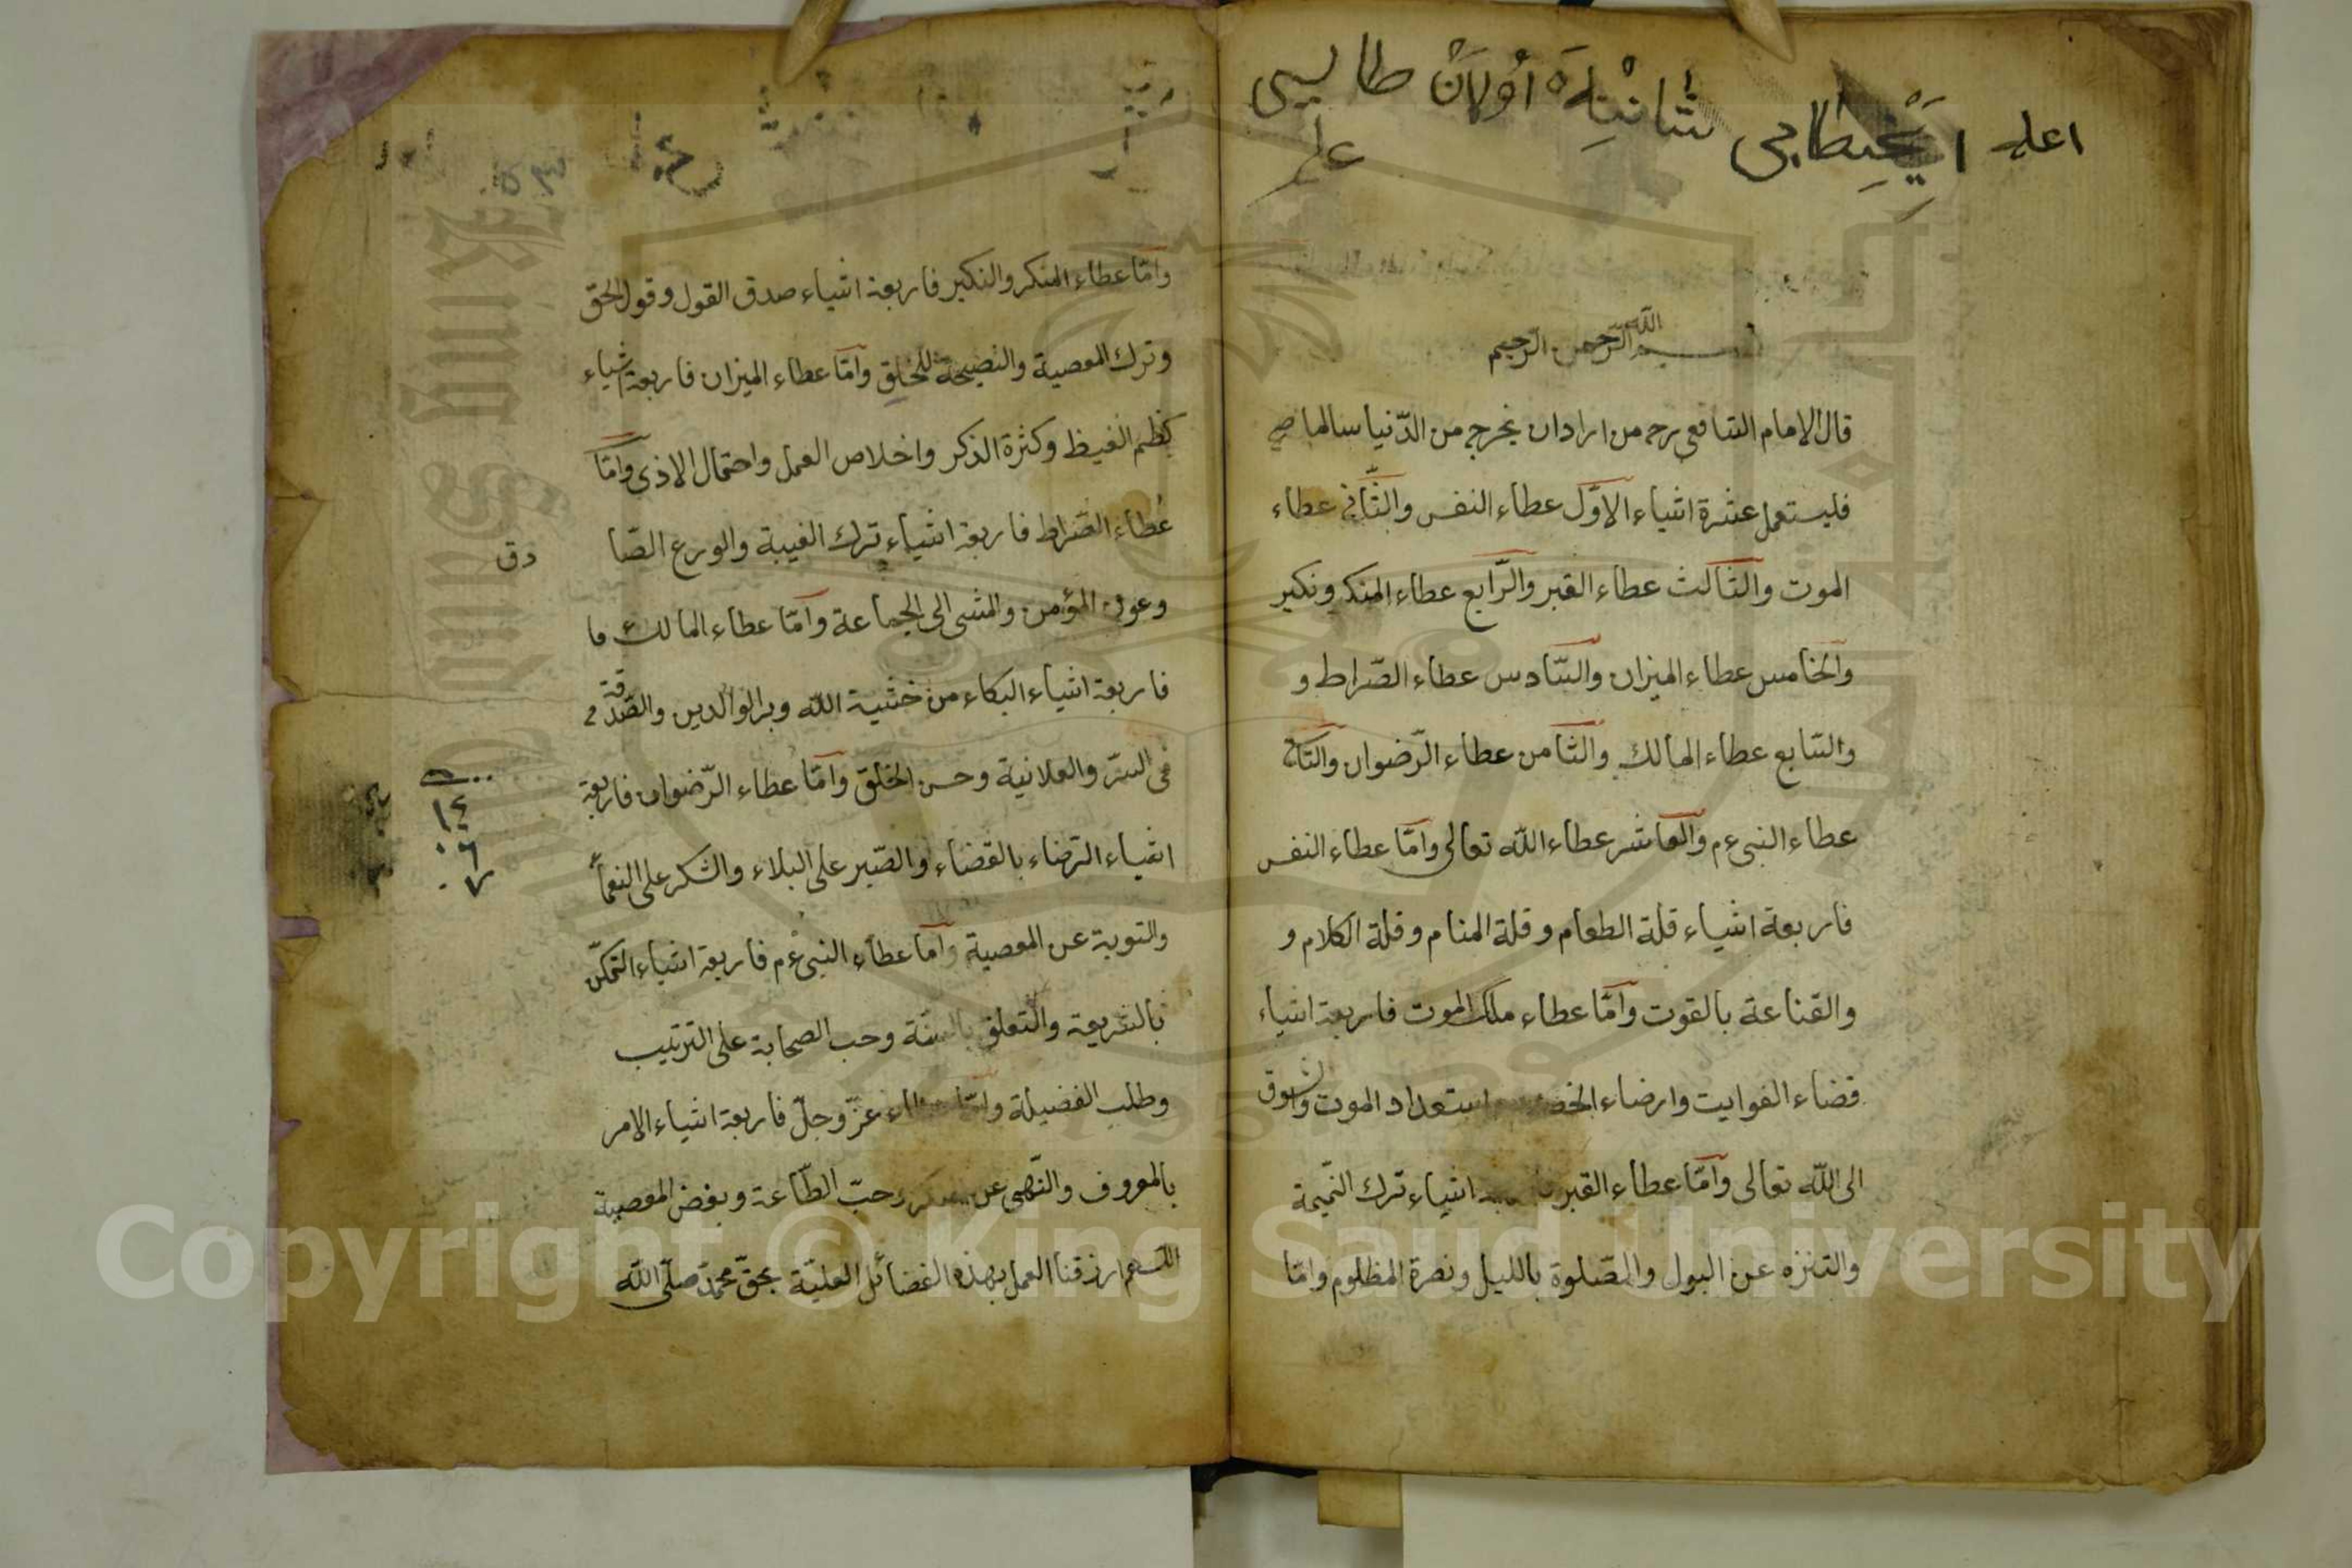 اعلم
شانيله اولان طالبى
علم
بسم الله الرّحمن الرّحيم
قال الامام الشافعى رحه من اراد ان يخرج من الدّنيا سالما
فليستعمل عشرة اشياء الاوّل عطاء النفس والثّانى عطاء
الموت والثّالث عطاء القبر والرّابع عطاء المنكر ونكير
والخامس عطاء الميزان والسّادس عطاء الصّراط و
والسّابع عطاء المالك والثّامن عطاء الرّضوان والتّاسع
عطاء النبى ءم والعاشر عطاء الله تعالى وامّا عطاء النفس
فاربعة اشياء قلة الطعام وقلة المنام وقلة الكلام و
والقناعة بالقوت وامّا عطاء ملك الموت فاربعة اشياء
قضاء الفوايت وارضاء استعداد الموت والشوق
الى الله تعالى وامّا عطاء القبر اشياء ترك النّميمة
والتنزه عن البول والصّلوة بالليل ونصرة المظلوم وامّا
وامّا عطاء المنكر والنكير فاربعة اشياء صدق القول وقول الحق
وترك المعصية والنصيحة للخلق وامّا عطاء الميزان فاربعة اشياء
كظم الغيظ وكثرة الذكر واخلاص العمل واحتمال الاذى وامّا
عطاء الصّراط فاربعة اشياء ترك الغيبة والورع الصّا
دق
وعون المؤمن والمشى الى الجماعة وامّا عطاء المالك فا
فاربعة اشياء البكاء من خشية الله وبر الوالدين والصّدقة فى
فى السّرّ والعلانية وحسن الخلق وامّا عطاء الرّضوان فاربعة
اشياء الرّضاء بالقضاء والصّبر على البلاء والشكر على النعماء
والتوبة عن المعصية وامّا عطاء النبى ءم فاربعة اشياء التمكّن
بالشريعة والتعلق بالسنة وحب الصحابة على الترتيب
وطلب الفضيلة وامّا عطاء عزّ وجلّ فاربعة اشياء الامر
بالمعروف والنّهى عن المنكر وحبّ الطّاعة وبغض المعصية
اللهم ارزقنا العمل بهذه الفضائل العليّة بحقّ محمّد صلّى الله
١٤
٠٦
٠٧
Copyright © King Saud University
King Saud
1957